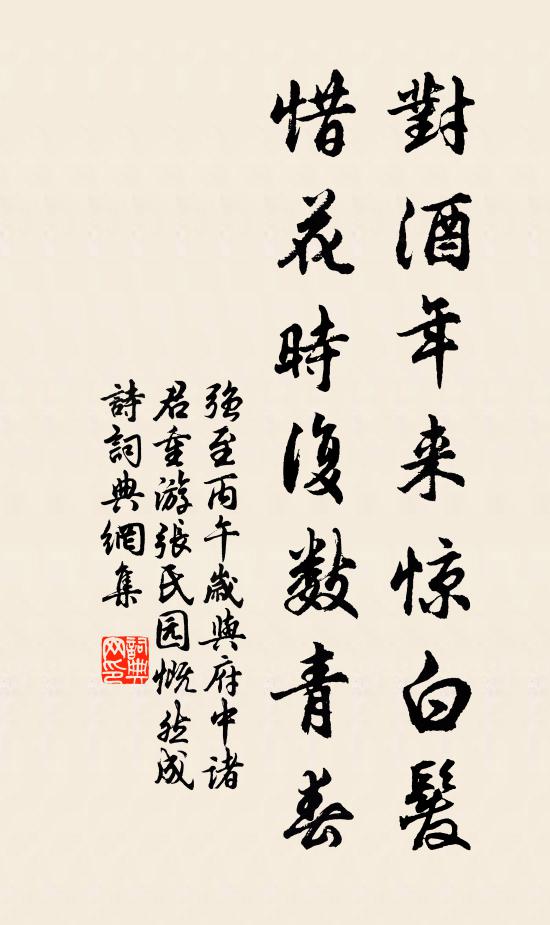 對酒年来惊白髮
惜花時復數青春
強至丙午歲與府中诸
君重游張民园慨然成
詩詞典網集
詞典
网印